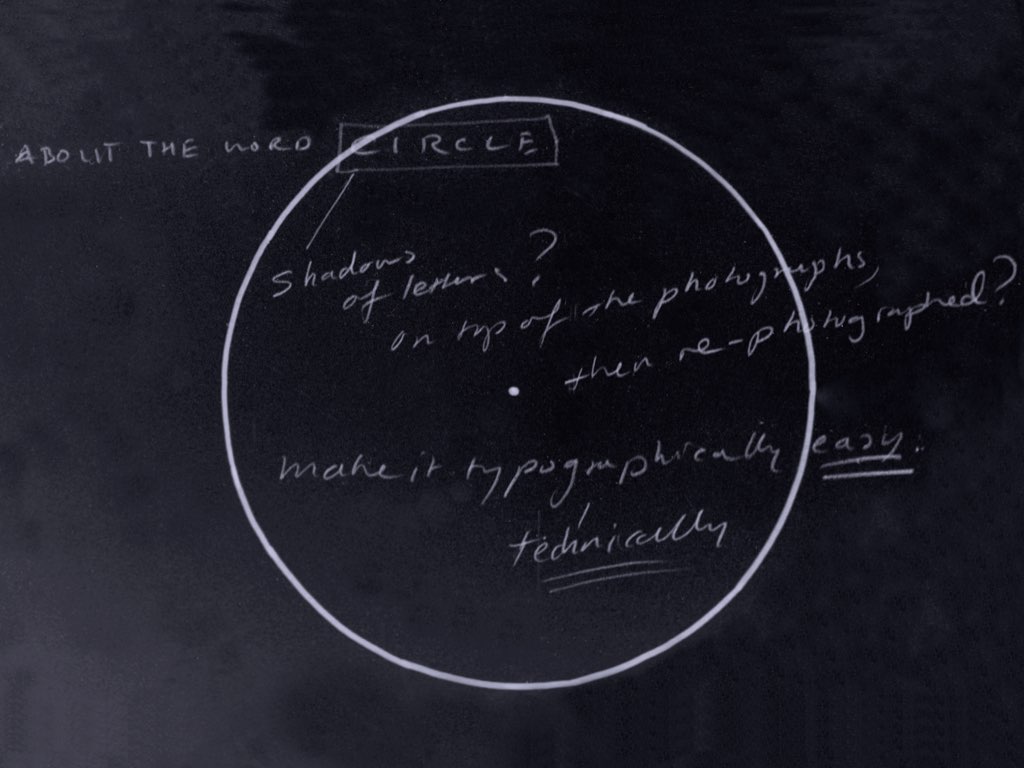 ABOUT THE WORD CIRCLE
Shadows
of letters?
on top of the photographs,
then re-photographed?
make it typographically easy.
technically